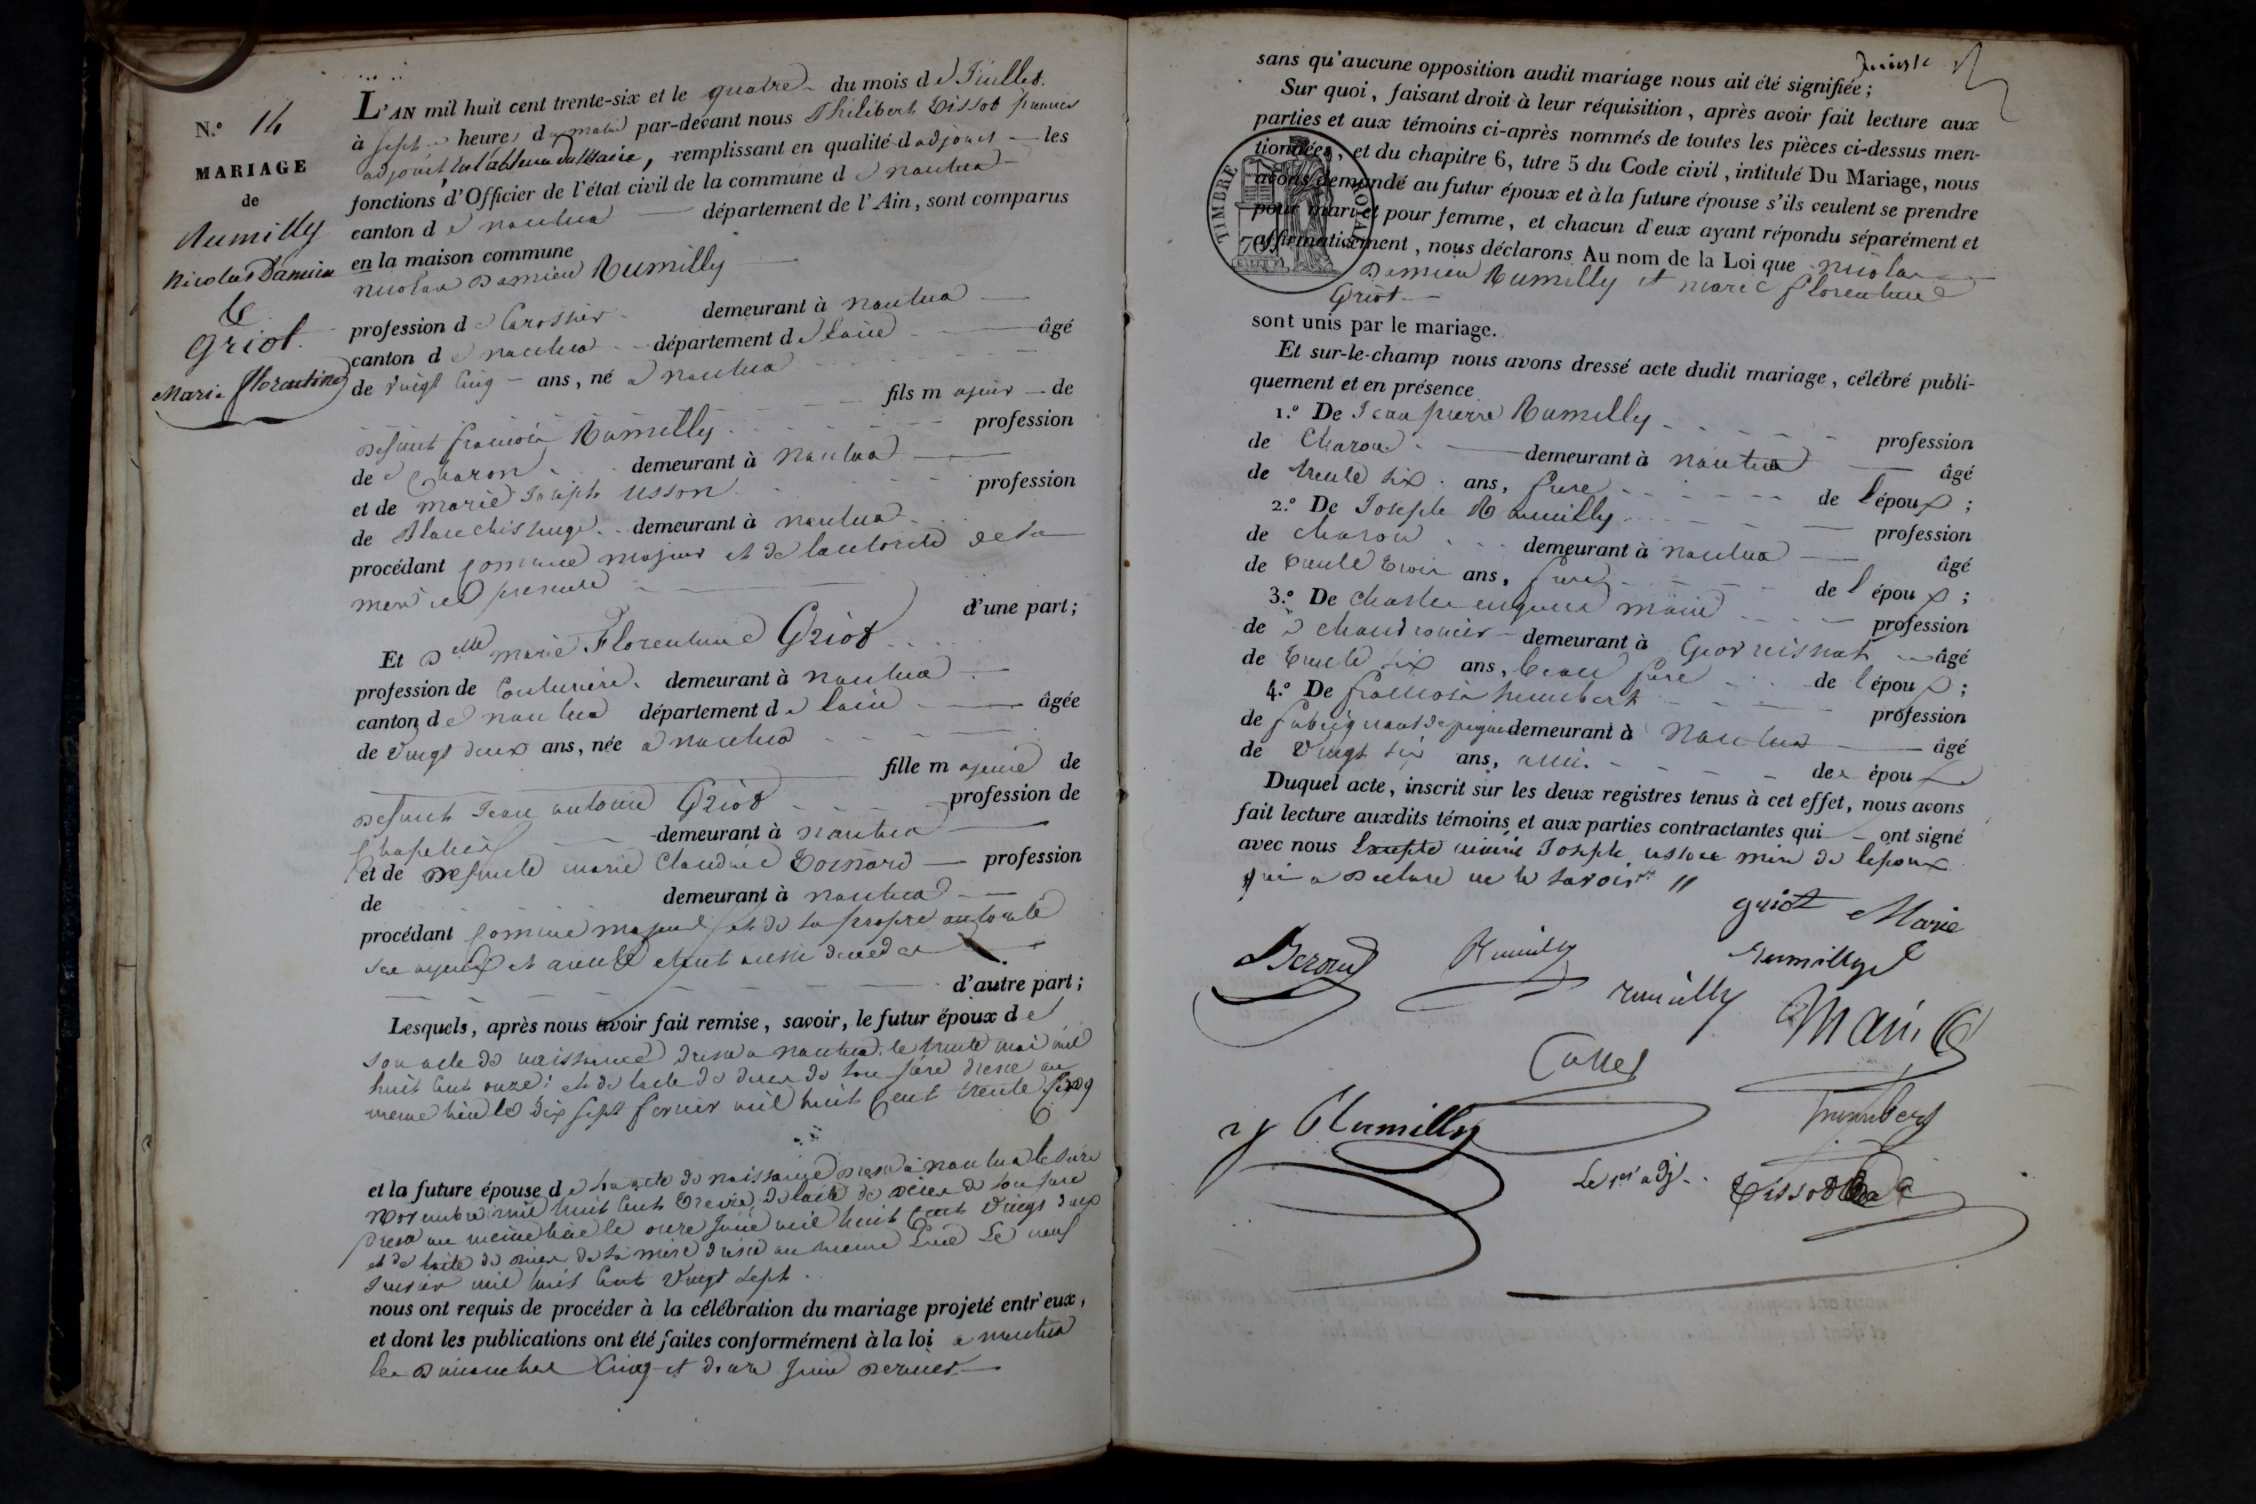 N.º 14
MARIAGE
de
Rumilly
Nicolas Damien
&
Griot
Marie florentine
L'AN mil huit cent trente-six et le quatre du mois de Juillet
à sept heures du matin par-devant nous Philibert Tissot premier
adjoint, en l'absence du Maire, remplissant en qualité d'adjoint les
fonctions d'Officier de l'état civil de la commune de nantua
canton de nantua département de l'Ain, sont comparus
en la maison commune
nicolas Damien Rumilly
profession de Carossier demeurant à nantua
canton de nantua département de l'ain âgé
de vingt cinq ans, né a nantua
fils majeur de
Defunt francois Rumilly profession
de Charon demeurant à nantua
et de marie Joseph usson profession
de Blanchisseuse demeurant à nantua
procédant comme majeur et de l'autorité de sa
mere ici presente
d'une part;
Et Delle marie Florentine Griot
profession de Couturiere demeurant à nantua
canton de nantua département de l'ain âgée
de vingt deux ans, née a nantua
fille majeure de
Defunt Jean antoine Griot profession de
Chapelier demeurant à nantua
et de Defunte marie Claudine Goinard profession
de demeurant à nantua
procédant comme majeure et de sa propre autorité
ses ayeux et aieules etant aussi decedes
d'autre part;
Lesquels, après nous avoir fait remise, savoir, le futur époux de
son acte de naissance dressé a nantua le trente mai mil
huit cent onze; et de l'acte de deces de son père dressé au
meme lieu le dix sept fevrier mil huit cent trente
et la future épouse de son acte de naissance dressé à nantua le
novembre mil huit cent treize, de l'acte de deces de son père
dressé au meme lieu le onze Juin mil huit cent vingt deux
et de l'acte de deces de sa mère dressé au meme lieu le neuf
Janvier mil huit cent vingt sept
nous ont requis de procéder à la célébration du mariage projeté entr'eux,
et dont les publications ont été faites conformément à la loi a nantua
les Dimanches Cinq et douze Juin Dernier
sans qu'aucune opposition audit mariage nous ait été signifiée;
Sur quoi, faisant droit à leur réquisition, après avoir fait lecture aux
parties et aux témoins ci-après nommés de toutes les pièces ci-dessus men-
tionnées, et du chapitre 6, titre 5 du Code civil, intitulé Du Mariage, nous
avons demandé au futur époux et à la future épouse s'ils veulent se prendre
pour mari et pour femme, et chacun d'eux ayant répondu séparément et
affirmativement, nous déclarons Au nom de la Loi que nicolas
Damien Rumilly et marie florentine
Griot
TIMBRE ROYAL
70
sont unis par le mariage.
Et sur-le-champ nous avons dressé acte dudit mariage, célébré publi-
quement et en présence
1.º De Jean pierre Rumilly profession
de Charon demeurant à nantua âgé
de trente six ans, frere de l'époux;
2.º De Joseph Rumilly profession
de charon demeurant à nantua âgé
de trente trois ans, frere de l'époux;
3.º De Charles maire profession
de chaudronnier demeurant à âgé
de trente six ans, beau frere de l'époux;
4.º De francois humbert profession
de fabriquant de peignes demeurant à Nantua âgé
de vingt six ans, ami des époux
Duquel acte, inscrit sur les deux registres tenus à cet effet, nous avons
fait lecture auxdits témoins et aux parties contractantes qui ont signé
avec nous Excepté marie Joseph usson mère de l'époux
qui a Declaré ne le savoir
griot Marie
Rumilly
rumilly
rumilly
Maire
Collet
Rumilly
humbert
Le 1er adj.
Tissot